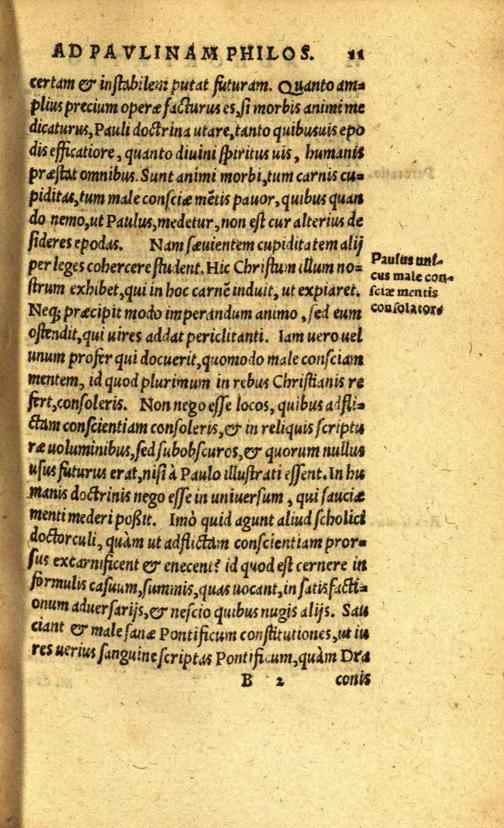 AD PAVLINAM PHILOS. 11
certam & instabilem putat futuram. Quanto am=
plius precium operæ facturus es, si morbis animi me
dicaturus, Pauli doctrina utare, tanto quibusuis epo
dis efficatiore, quanto diuini spiritus uis, humanis
præstat omnibus. Sunt animi morbi, tum carnis cu=
piditas, tum male consciæ mẽtis pauor, quibus quan
do nemo, ut Paulus, medetur, non est cur alterius de
sideres epodas. Nam sæuientem cupiditatem alij
per leges cohercere student. Hic Christum illum no=
strum exhibet, qui in hoc carnẽ induit, ut expiaret.
Neq; præcipit modo imperandum animo, sed eum
ostendit, qui uires addat periclitanti. Iam uero uel
unum profer qui docuerit, quomodo male consciam
mentem, id quod plurimum in rebus Christianis re
fert, consoleris. Non nego esse locos, quibus adfli=
ctam conscientiam consoleris, & in reliquis scriptu
ræ uoluminibus, sed subobscuros, & quorum nullus
usus futurus erat, nisi à Paulo illustrati essent. In hu
manis doctrinis nego esse in uniuersum, qui sauciæ
menti mederi poßit. Imò quid agunt aliud scholici
doctorculi, quàm ut adflictam conscientiam pror=
sus excarnificent & enecent? id quod est cernere in
formulis casuum, summis, quas uocant, in satisfacti=
onum aduersarijs, & nescio quibus nugis alijs. Sau
ciant & male sanæ Pontificum constitutiones, ut iu
res uerius sanguine scriptas Pontificum, quàm Dra
B 2 conis
Paulus uni=
cus male con=
sciæ mentis
consolator